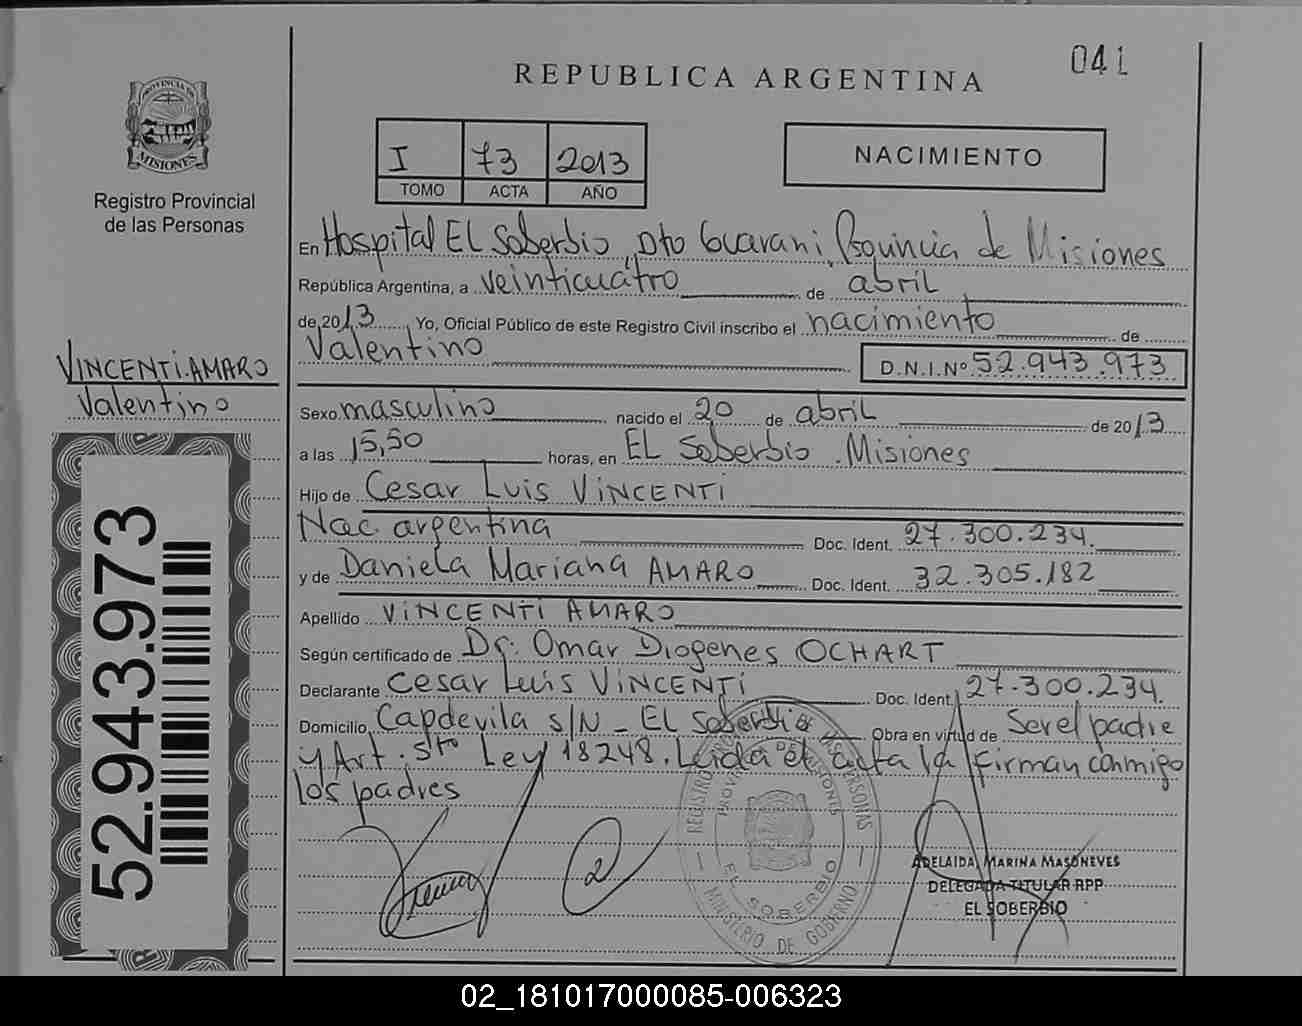 041
REPUBLICA ARGENTINA
PROVINCIA DE
MISIONES
Registro Provincial
de las Personas
I 73 2013
TOMO ACTA AÑO
NACIMIENTO
En Hospital EL Soberbio, Dto Guarani, Provincia de Misiones
República Argentina, a veinticuatro de abril
de 2013 Yo, Oficial Público de este Registro Civil inscribo el nacimiento de
Valentino D.N.I.Nº 52.943.973
VINCENTI AMARO
Valentino
Sexo masculino nacido el 20 de abril de 2013
a las 15,50 horas, en EL Soberbio. Misiones
Hijo de Cesar Luis VINCENTI
Nac. argentina Doc. Ident. 27.300.234.
y de Daniela Mariana AMARO Doc. Ident. 32.305.182
Apellido VINCENTI AMARO
Según certificado de Dr. Omar Diogenes OCHART
Declarante Cesar Luis VINCENTI Doc. Ident. 27.300.234.
Domicilio Capdevila S/N - EL Soberbio Obra en virtud de Ser el padre
y Art. 5to Ley 18248. Leida el acta la firman conmigo
los padres
52.943.973
REGISTRO PROVINCIAL DE LAS PERSONAS
PROVINCIA DE MISIONES
EL SOBERBIO
MINISTERIO DE GOBIERNO
ADELAIDA MARINA MASONEVES
DELEGADA TITULAR RPP
EL SOBERBIO
02_181017000085-006323